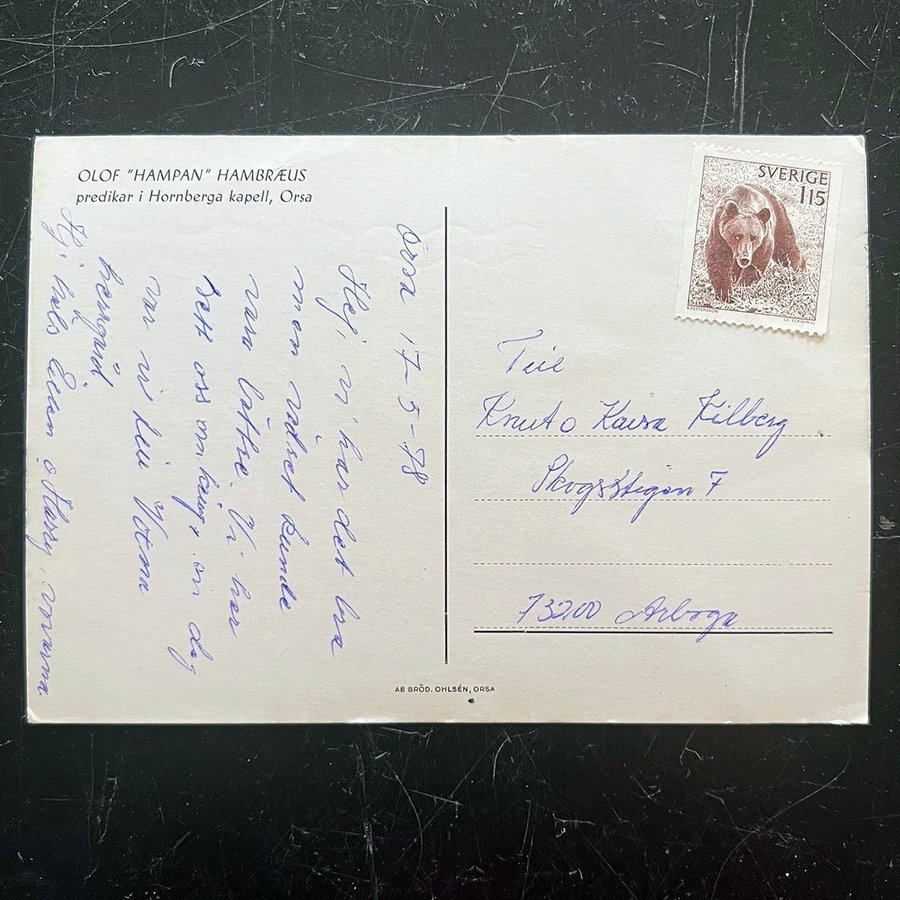 OLOF "HAMPAN" HAMBRÆUS
predikar i Hornberga kapell, Orsa
Orsa 17-5-78
Hej, vi har det bra
men vädret kunde
vara bättre. Vi har
sett oss omkring, en dag
var vi till
Hej hälsn Ellen o Harry,
SVERIGE
115
Till
Knut o Kaisa Kilberg
Skogsstigen 7
73200 Arboga
AB BRÖD. OHLSÉN, ORSA